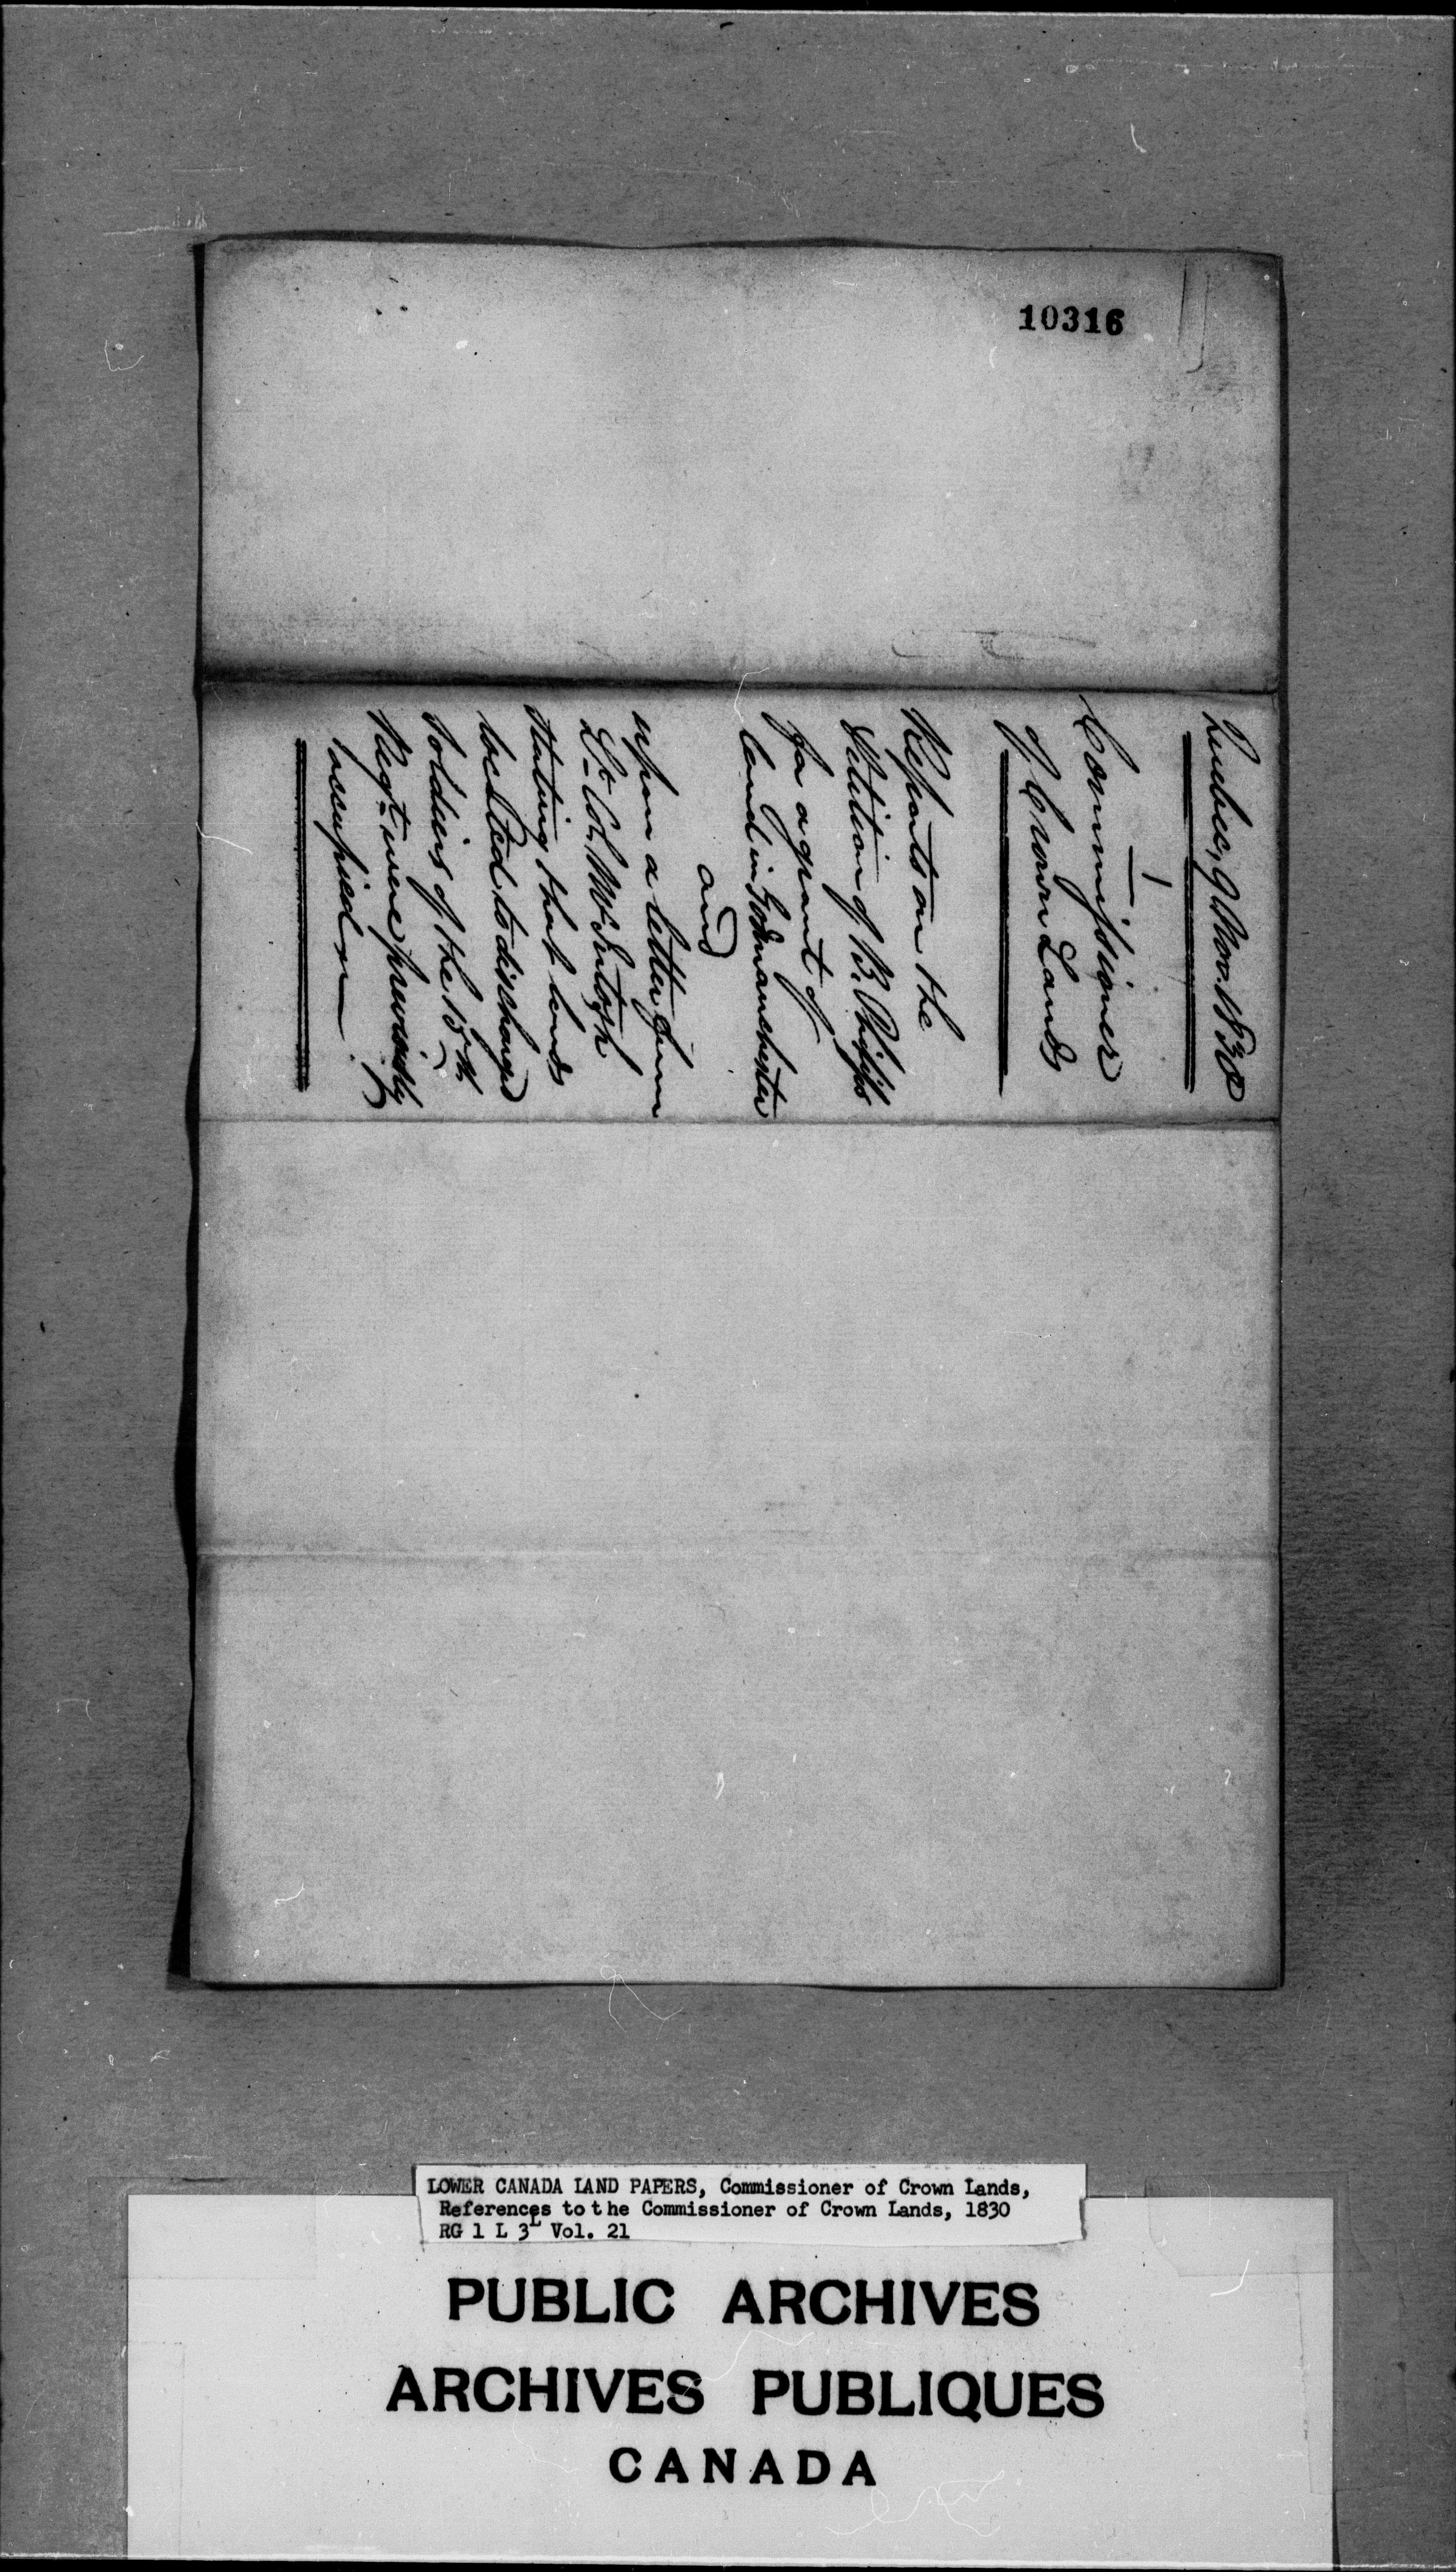 10316
Quebec, 9 Nov. 1830
Commissioner
of Crown Lands
Reports on the
Petition of B. Phillips
for a grant of
land in Godmanchester
and
upon a letter from
Lt. Col. McIntosh
stating that lands
located to discharged
soldiers of the 15th
Regt. were previously
occupied
LOWER CANADA LAND PAPERS, Commissioner of Crown Lands,
References to the Commissioner of Crown Lands, 1830
RG 1 L 3L Vol. 21
PUBLIC ARCHIVES
ARCHIVES PUBLIQUES
CANADA